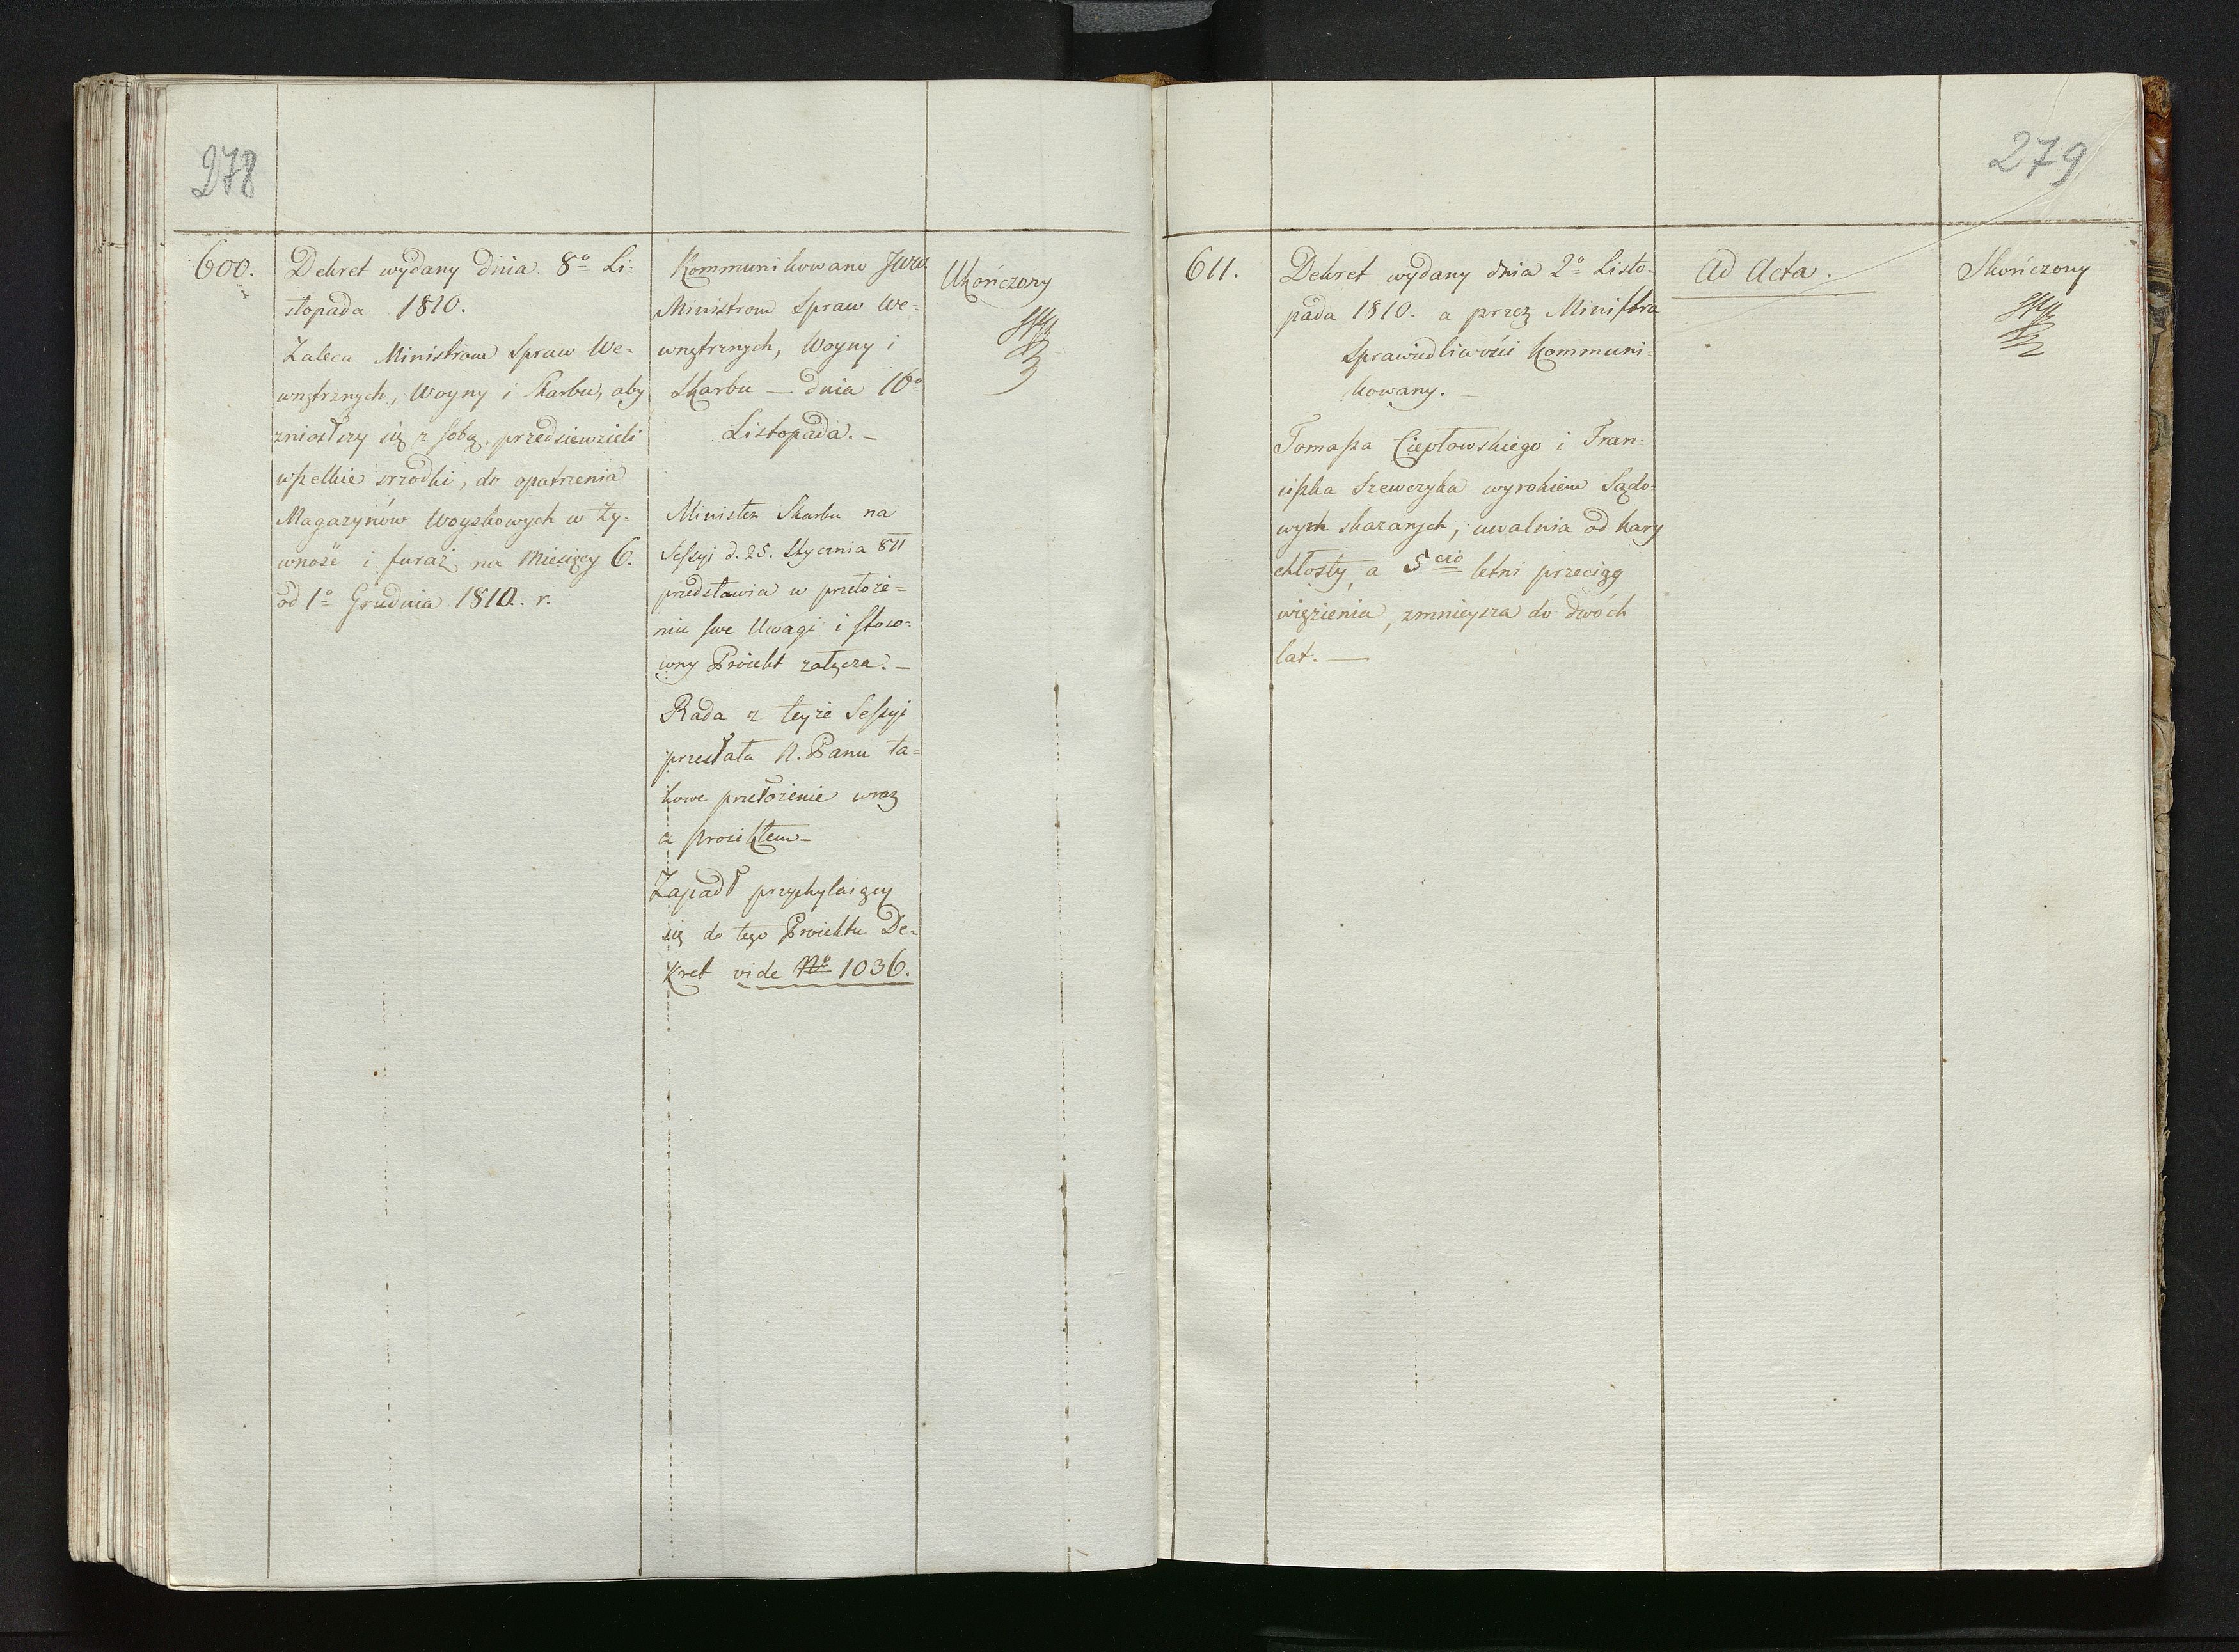 278
600.
Dekret wydany dnia 8º Li=
stopada 1810.
Zaleca Ministrom Spraw We=
wnętrznych, Woyny i Skarbu, aby
zniosłszy się z sobą, przedsiewzieli
wszelkie srzodki, do opatrzenia
Magazynów Woyskowych w Ży=
wność i furaż na Miesięcy 6.
od 1º Grudnia 1810. r.
Kommunikowano
Ministrom Spraw We=
wnętrznych, Woyny i
Skarbu — dnia 10º
Listopada. —
Minister Skarbu na
Sessyi d. 25. Stycznia 811
przedstawia w przełoże=
niu swe Uwagi i stoso=
wny Proiekt załącza. —
Rada z teyże Sessyi
przesłała N. Panu ta=
kowe przełożenie wraz
z proiektem —
Zapadł przychylaiący
się do tego Proiektu De=
kret vide Nº 1036.
Ukończony
279
611.
Dekret wydany dnia 2º Listo=
pada 1810. a przez Ministra
Sprawiedliwości Kommuni=
kowany. —
Tomasza Ciepłowskiego i Fran=
ciszka Szewczyka wyrokiem Sądo=
wym skazanych, uwalnia od kary
chłosty, a 5cio letni przeciąg
więzienia, zmnieysza do dwóch
lat. —
Ad Acta.
Skończony